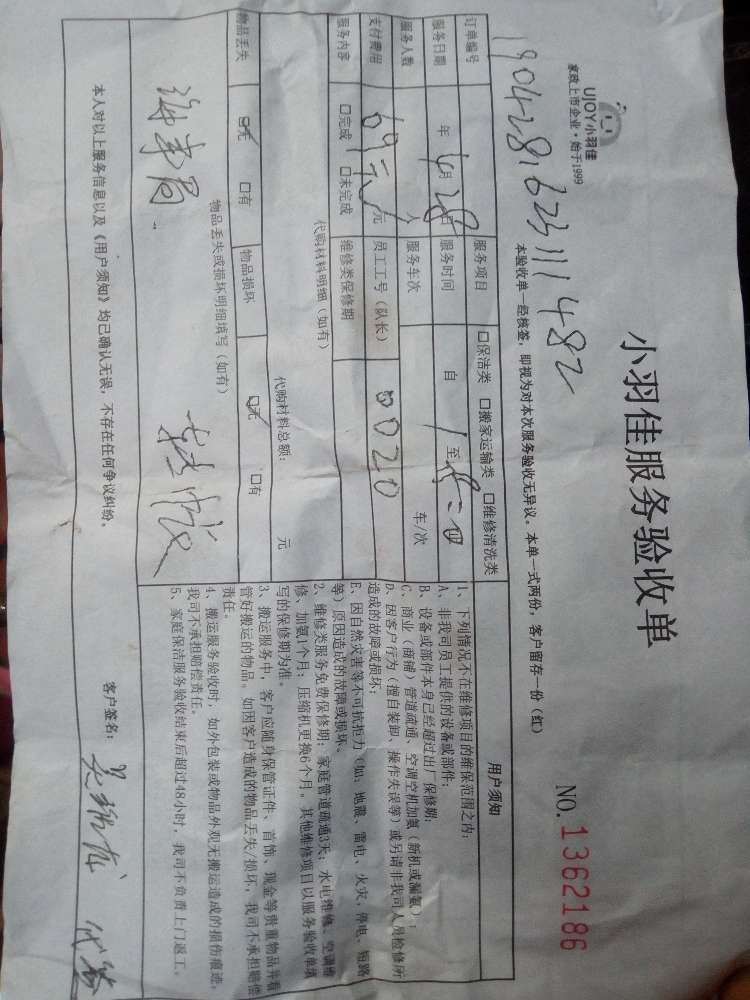 UJOY小羽佳
家政上市企业·始于1999
小羽佳服务验收单
NO.1362186
190428162311482
本验收单一经核签，即视为对本次服务验收无异议。本单一式两份，客户留存一份（红）
订单编号 服务项目 □保洁类 □搬家运输类 □维修清洗类
服务日期 年 4月 28日 服务时间 自 1 至
服务人数 人 服务车次 车/次
支付费用 69元 元 员工工号（队长） 0020
服务内容 □完成 □未完成 维修类保修期
代购材料明细（如有）
代购材料总额： 元
物品丢失 ☑无 □有 物品损坏 ☑无 □有
物品丢失或损坏明细填写（如有）
本人对以上服务信息以及《用户须知》均已确认无误，不存在任何争议纠纷。
用户须知
1、下列情况不在维修项目的维保范围之内：
A、非我司员工提供的设备或部件；
B、设备或部件本身已经超过出厂保修期；
C、商业（商铺）管道疏通、空调空机加氨（新机或漏氨）；
D、因客户行为（擅自装卸、操作失误等）或另请非我司人员检修所
造成的故障或损坏；
E、因自然灾害等不可抗拒力（如：地震、雷电、火灾，停电、短路
等）原因造成的故障或损坏。
2、维修类服务免费保修期：家庭管道疏通3天；水电维修、空调维
修、加氨1个月；压缩机更换6个月，其他维修项目以服务验收单填
写的保修期为准。
3、搬运服务中，客户应随身保管证件、首饰、现金等贵重物品并看
管好搬运的物品。如因客户造成的物品丢失/损坏，我司不承担赔偿
责任。
4、搬运服务验收时，如外包装或物品外观无搬运造成的损伤痕迹，
我司不承担赔偿责任。
5、家庭保洁服务验收结束后超过48小时，我司不负责上门返工。
客户签名：